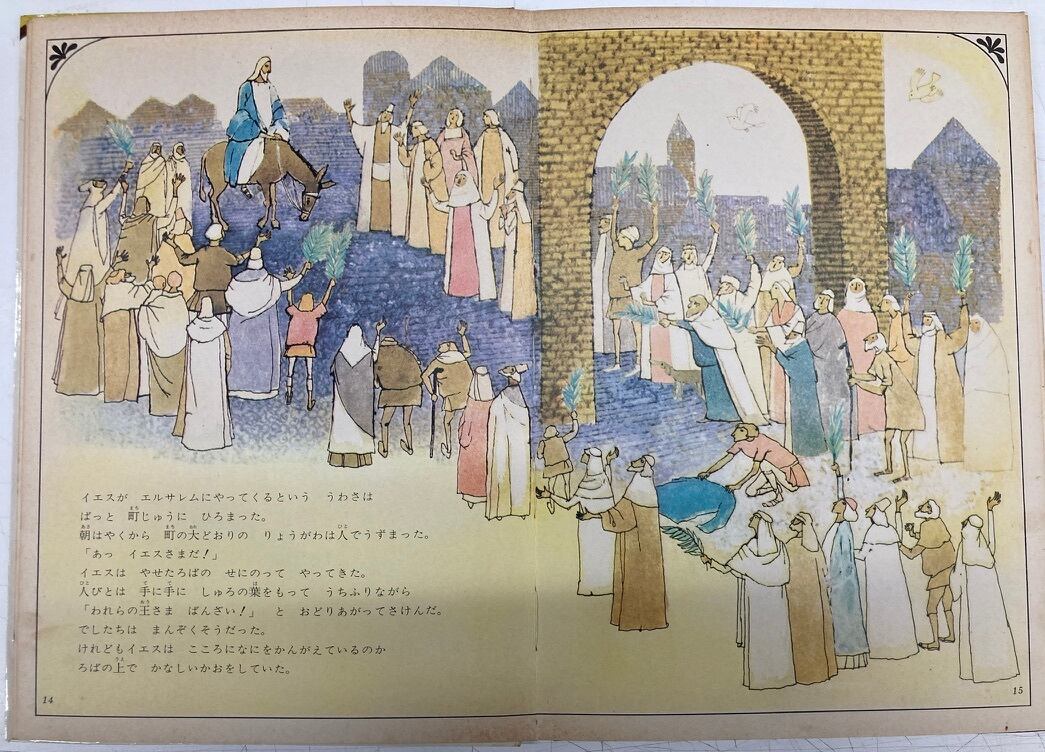 イエスが　エルサレムにやってくるという　うわさは
ぱっと　町じゅうに　ひろまった。
朝はやくから　町の大どおりの　りょうがわは人でうずまった。
「あっ　イエスさまだ！」
イエスは　やせたろばの　せにのって　やってきた。
人びとは　手に手に　しゅろの葉をもって　うちふりながら
「われらの王さま　ばんざい！」　と　おどりあがってさけんだ。
でしたちは　まんぞくそうだった。
けれどもイエスは　こころになにをかんがえているのか
ろばの上で　かなしいかおをしていた。
14
15